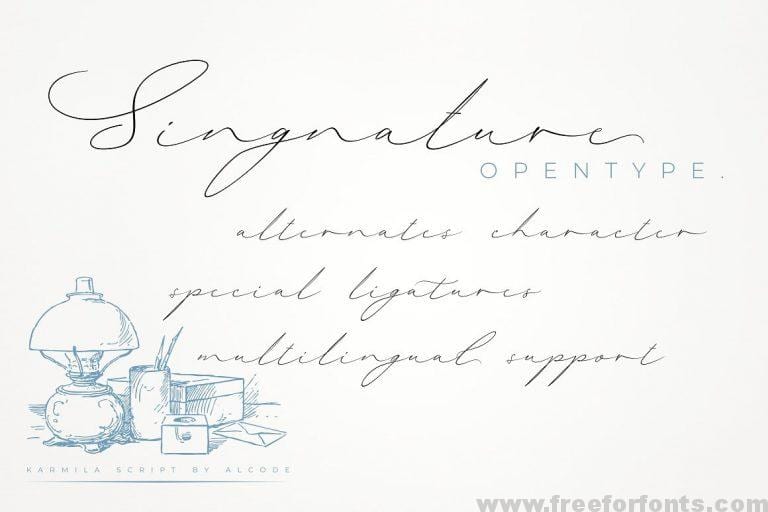 Singnature
OPENTYPE.
alternates character
special ligatures
multilingual support
KARMILA SCRIPT BY ALCODE
www.freeforfonts.com